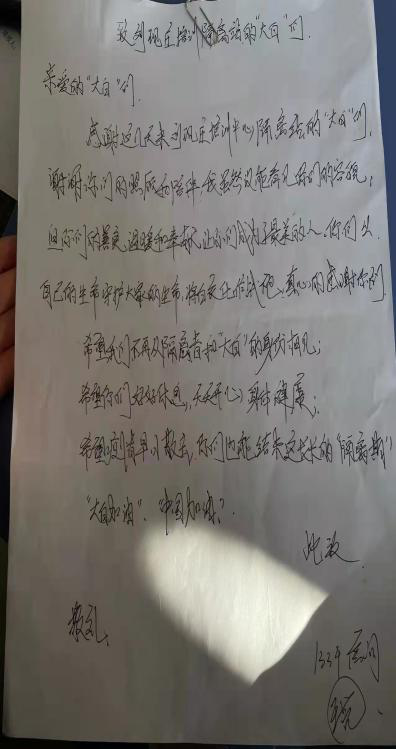 致刘现庄培训隔离站的“大白”们
亲爱的“大白”们
感谢这几天来刘现庄培训中心隔离站的“大白”们,
谢谢你们的照顾和陪伴,我虽然没能看见你们的容貌,
但你们的善良、温暖和奉献,让你们成为了最美的人,你们以
自己的生命守护大家的生命,将白衣化作战袍,真心的感谢你们
希望我们不再以隔离者和“大白”的身份相见;
希望你们好好休息,天天开心,身体健康;
希望疫情早日散去,你们也能结束这长长的“隔离期”
“大白加油”、“中国加油”!
此致
敬礼
1334房间